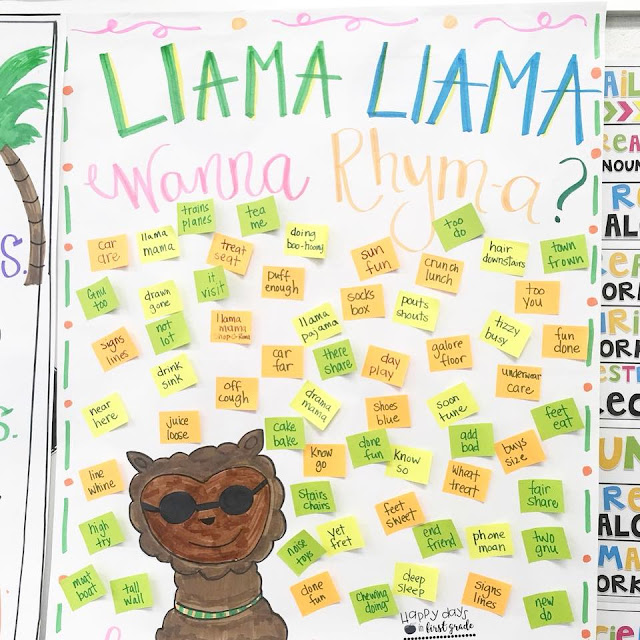 LLAMA LLAMA
Wanna Rhym-a?
trains
planes
tea
me
too
do
car
are
llama
mama
treat
seat
doing
boo-hooing
sun
fun
crunch
lunch
hair
downstairs
town
frown
Gnu
too
drawn
gone
it
visit
puff
enough
socks
box
pouts
shouts
too
you
signs
lines
not
lot
llama
mama
llama
pajama
tizzy
busy
fun
done
car
far
there
share
day
play
galore
floor
drink
sink
off
cough
drama
mama
underwear
care
near
here
juice
loose
shoes
blue
soon
tune
feet
eat
cake
bake
know
go
done
fun
know
so
add
bad
buys
size
line
whine
wheat
treat
fair
share
stairs
chairs
feet
sweet
high
try
noise
toys
yet
fret
end
friend
phone
moan
two
gnu
moat
boat
tall
wall
done
fun
chewing
doing
deep
sleep
signs
lines
new
do
Happy days
in first grade
S.
S.
NOUN